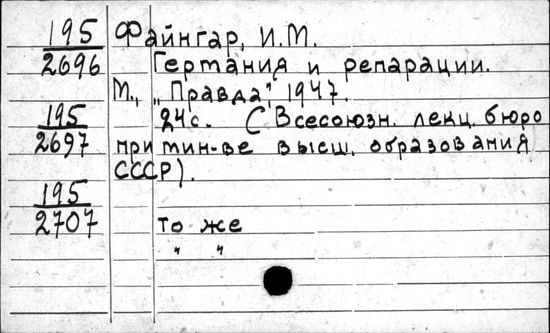 195 Файнгар, И.М.
2696 Германия и репарации.
М., „Правда", 1947.
195 24с. (Всесоюзн. лекц. бюро
2697 при мин-ве высш. образования
СССР).
195
2707 То же
" "